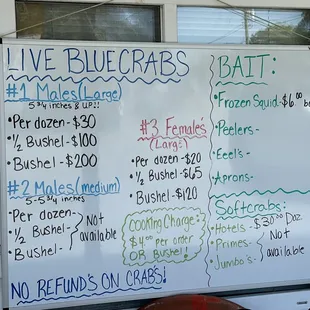 LIVE BLUECRABS
#1 Males (Large)
5 3/4 inches & UP!!
• Per dozen - $30
• 1/2 Bushel - $100
• Bushel - $200
#2 Males (medium)
5 - 5 3/4 inches
• Per dozen -
• 1/2 Bushel -
• Bushel -
Not
available
NO REFUND'S ON CRABS!
#3 Female's
(Large)
• Per dozen - $20
• 1/2 Bushel - $65
• Bushel - $120
Cooking Charge:
$4.00 per order
OR Bushel!
BAIT:
• Frozen Squid - $6.00
• Peelers -
• Eeel's -
• Aprons -
Softcrabs:
• Hotels - $30.00 Doz
• Primes -
• Jumbo's -
Not
available